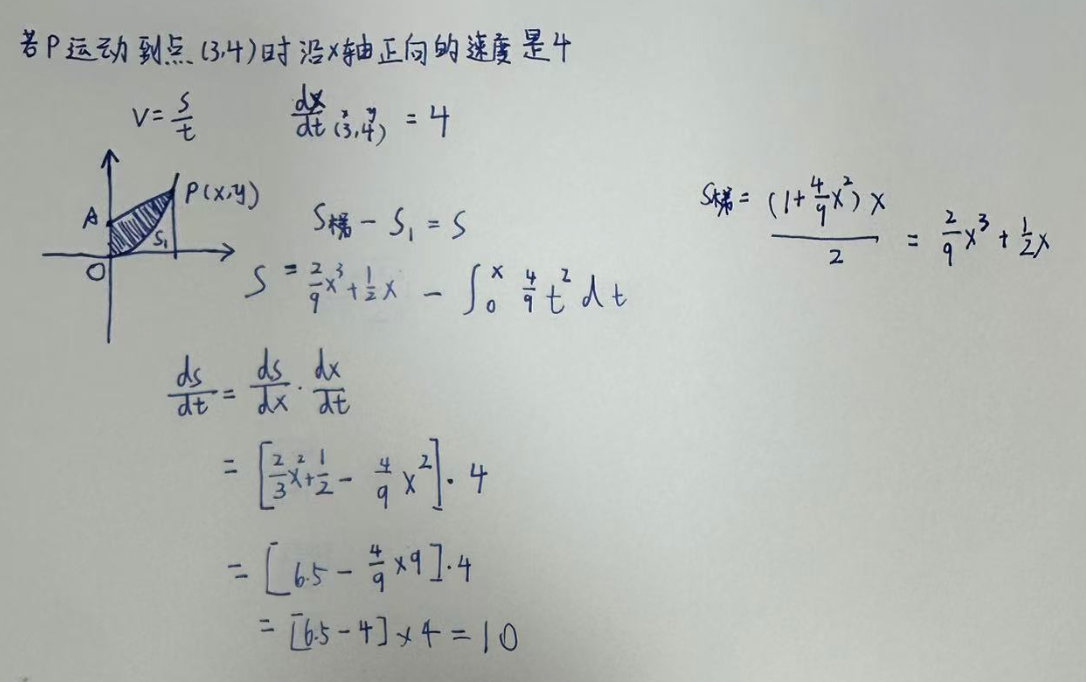 若P运动到点(3,4)时沿x轴正向的速度是4
V=s/t dx/dt (3,4) = 4
x y
A
P(x,y)
S₁
O
S梯 - S₁ = S
S梯 = (1+4/9x²)x/2 = 2/9x³+1/2x
S = 2/9x³+1/2x - ∫₀ˣ 4/9t²dt
ds/dt = ds/dx · dx/dt
= [2/3x²+1/2 - 4/9x²]·4
= [6.5 - 4/9×9]·4
= [6.5-4]×4=10